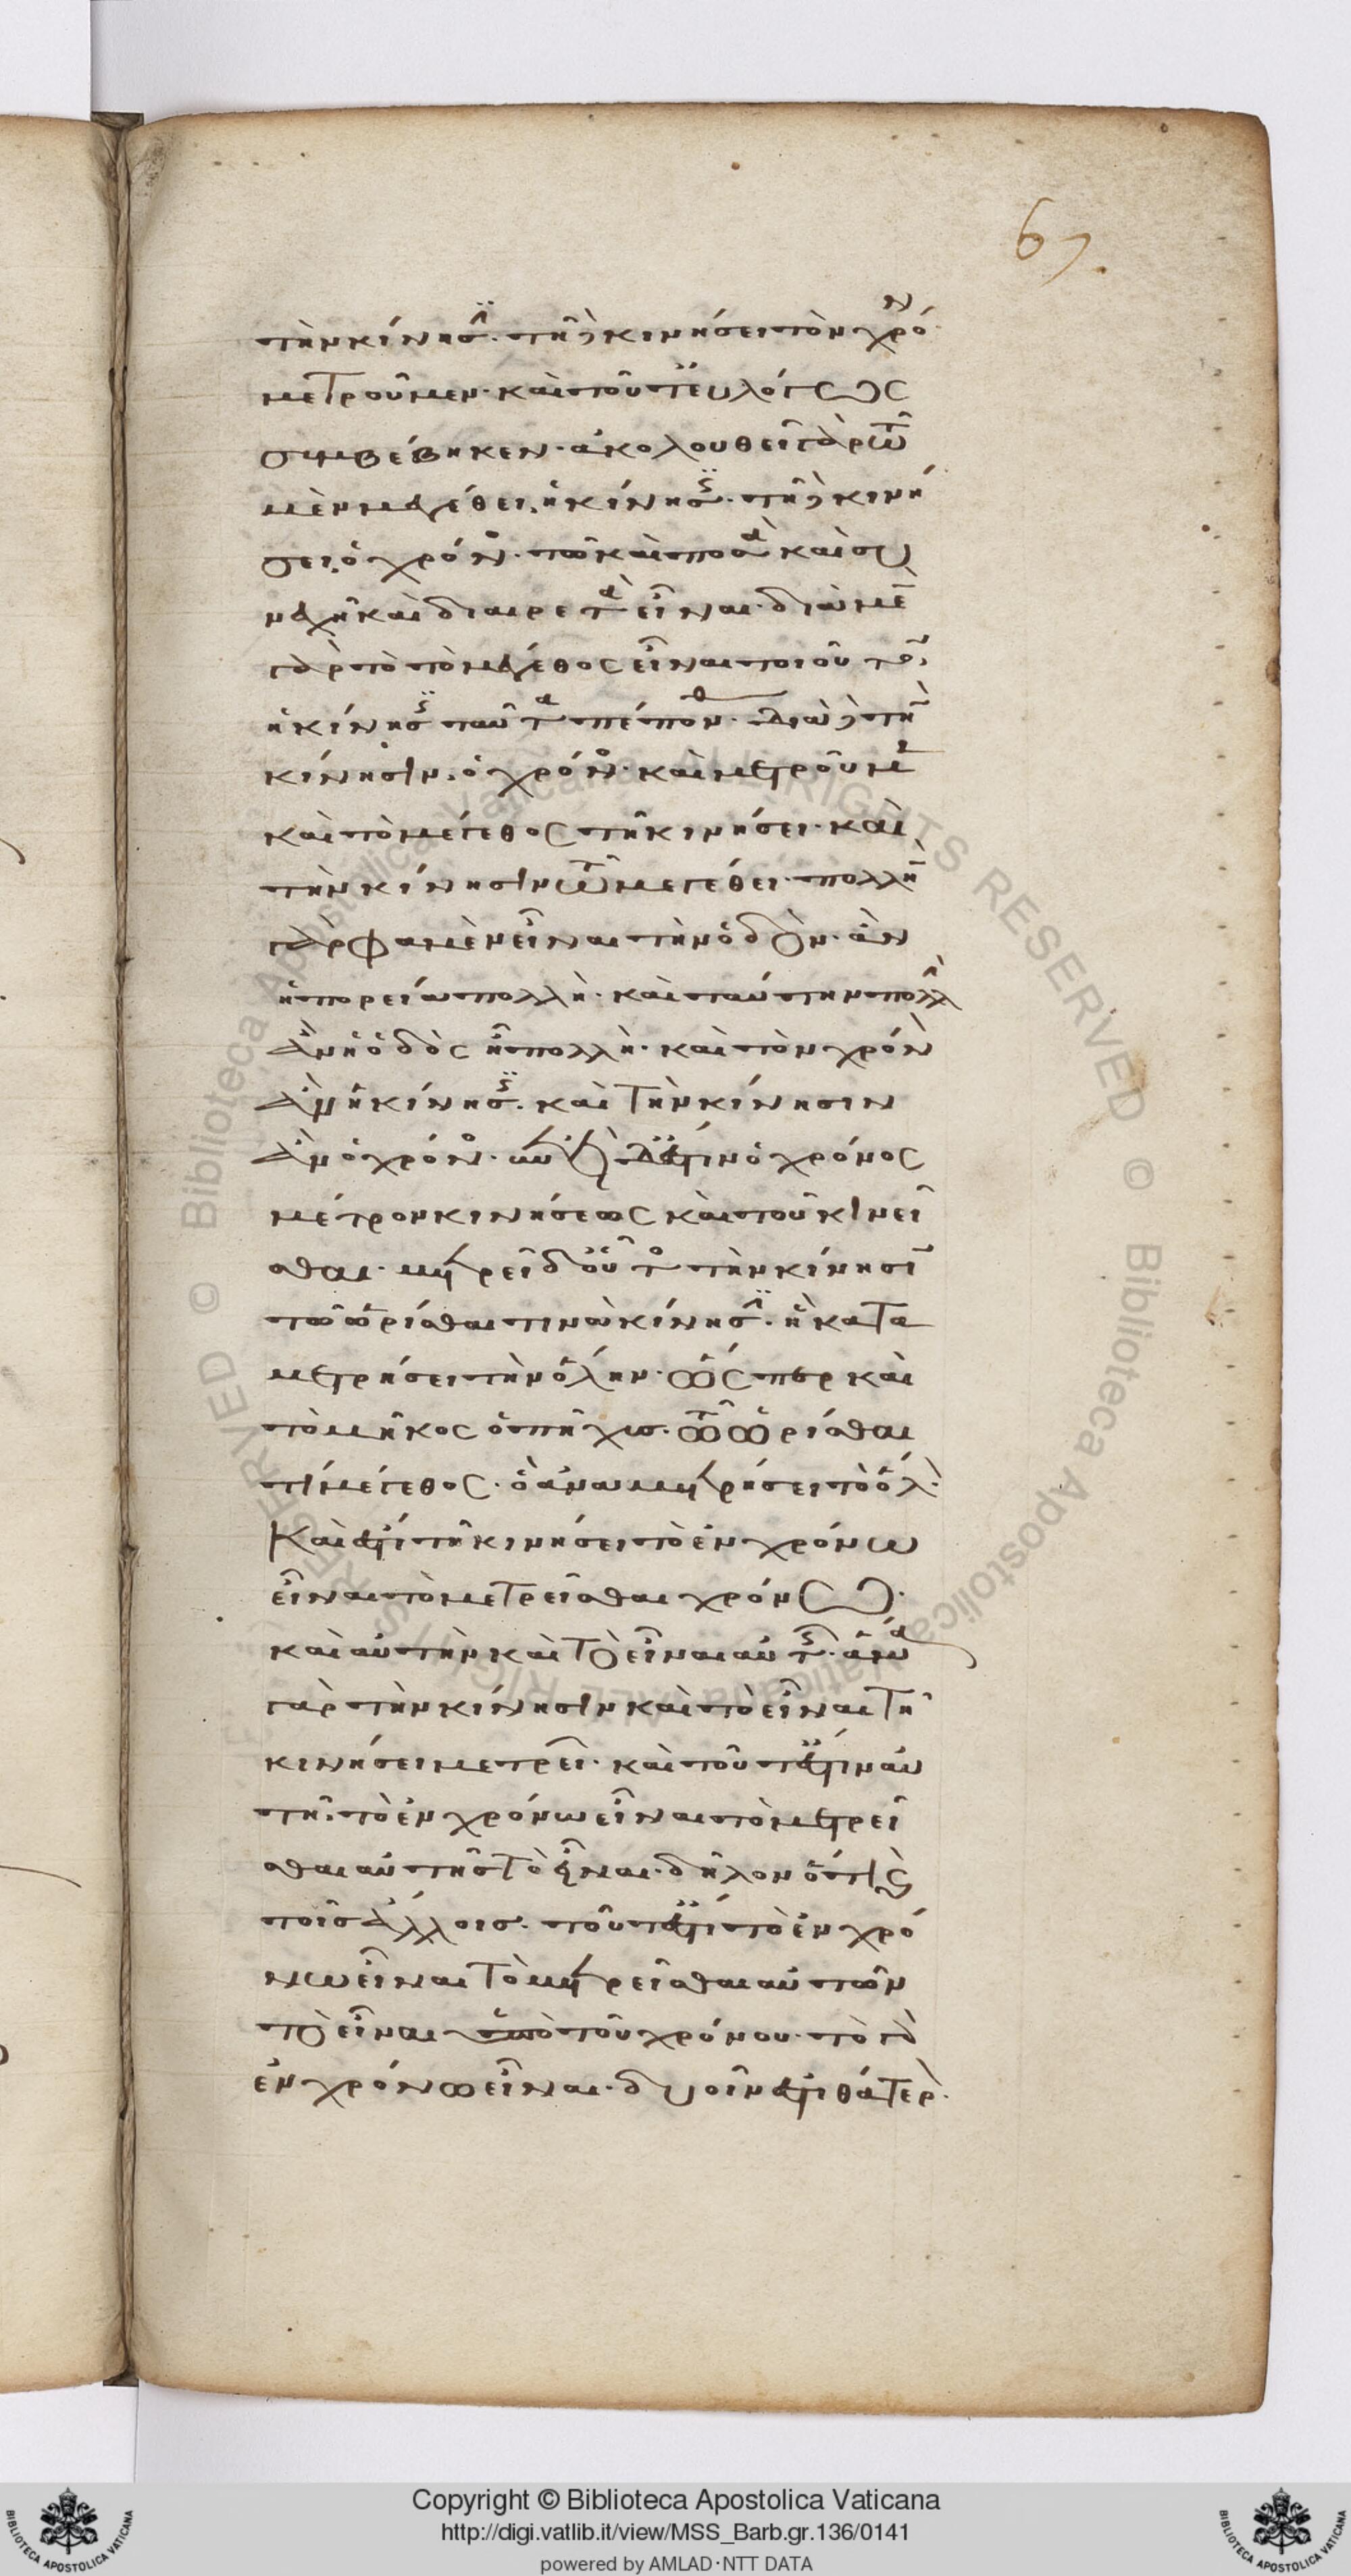 67.
τὴν κίνησιν· τῇ δὲ κινήσει τὸν χρόνον
μετροῦμεν· καὶ τοῦτ' εὐλόγως
συμβέβηκεν· ἀκολουθεῖ γὰρ τῶ
μὲν μεγέθει ἡ κίνησις· τῇ δὲ κινή
σει ὁ χρόνος· τῶ καὶ ποσὰ καὶ συ
νεχῆ καὶ διαιρετὰ εἶναι· διὰ μὲν
γὰρ τὸ τὸ μέγεθος εἶναι τοιοῦτον
ἡ κίνησις ταῦτα πέπονθεν· διὰ δὲ τὴν
κίνησιν ὁ χρόνος· καὶ μετροῦμεν
καὶ τὸ μέγεθος τῇ κινήσει· καὶ
τὴν κίνησιν τῶ μεγέθει· πολλὴν
γάρ φαμεν εἶναι τὴν ὁδόν· ἂν
ἡ πορεία πολλή· καὶ ταύτην πολλὴν
ἂν ἡ ὁδὸς ᾖ πολλή· καὶ τὸν χρόνον
ἂν ἡ κίνησις· καὶ τὴν κίνησιν
ἂν ὁ χρόνος· ἐπεὶ δ' ἐστὶν ὁ χρόνος
μέτρον κινήσεως καὶ τοῦ κινεῖ
σθαι· μετρεῖ δ' οὗτος τὴν κίνησιν
τῶ ὁρίσαι τινὰ κίνησιν· ἣ κατα
μετρήσει τὴν ὅλην· ὥσπερ καὶ
τὸ μῆκος ὁ πῆχυς· τῶ ὁρίσαι
τι μέγεθος· ὃ ἀναμετρήσει τὸ ὅλον·
Καὶ ἔστι τῇ κινήσει τὸ ἐν χρόνω
εἶναι τὸ μετρεῖσθαι χρόνω·
καὶ αὐτὴν καὶ τὸ εἶναι αὐτῆς· ἅμα
γὰρ τὴν κίνησιν καὶ τὸ εἶναι τῇ
κινήσει μετρεῖ· καὶ τοῦτ' ἐστὶν αὐ
τῇ· τὸ ἐν χρόνω εἶναι τὸ μετρεῖ
σθαι αὐτῆς τὸ εἶναι· δῆλον ὅτι καὶ
τοῖς ἄλλοις· τοῦτ' ἐστὶ τὸ ἐν χρό
νω εἶναι τὸ μετρεῖσθαι αὐτῶν
τὸ εἶναι ὑπὸ τοῦ χρόνου· τὸ γὰρ
ἐν χρόνω εἶναι· δυοῖν ἐστι θάτερον·
Copyright © Biblioteca Apostolica Vaticana
http://digi.vatlib.it/view/MSS_Barb.gr.136/0141
powered by AMLAD·NTT DATA